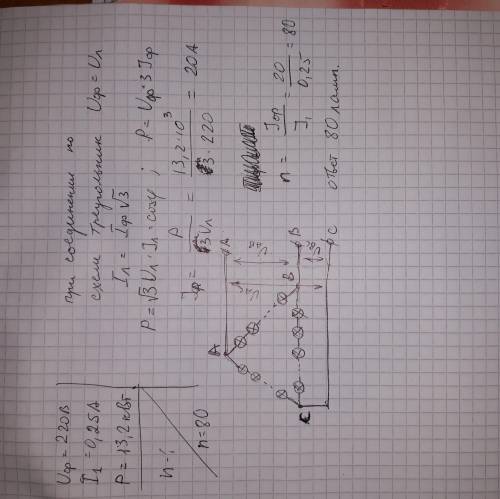 Uф = 220В
I₁ = 0,25А
P = 13,2 кВт
n = ?
n = 80
при соединении по
схеме треугольник Uф = Uл
Iл = Iф √3
P = √3 Uл · Iл · cosφ ; P = Uф · 3 Iф
Iф = P / 3Uл = 13,2·10³ / 3·220 = 20А
n = Iф / I₁ = 20 / 0,25 = 80
ответ 80 ламп.
A
A
B
B
C
C